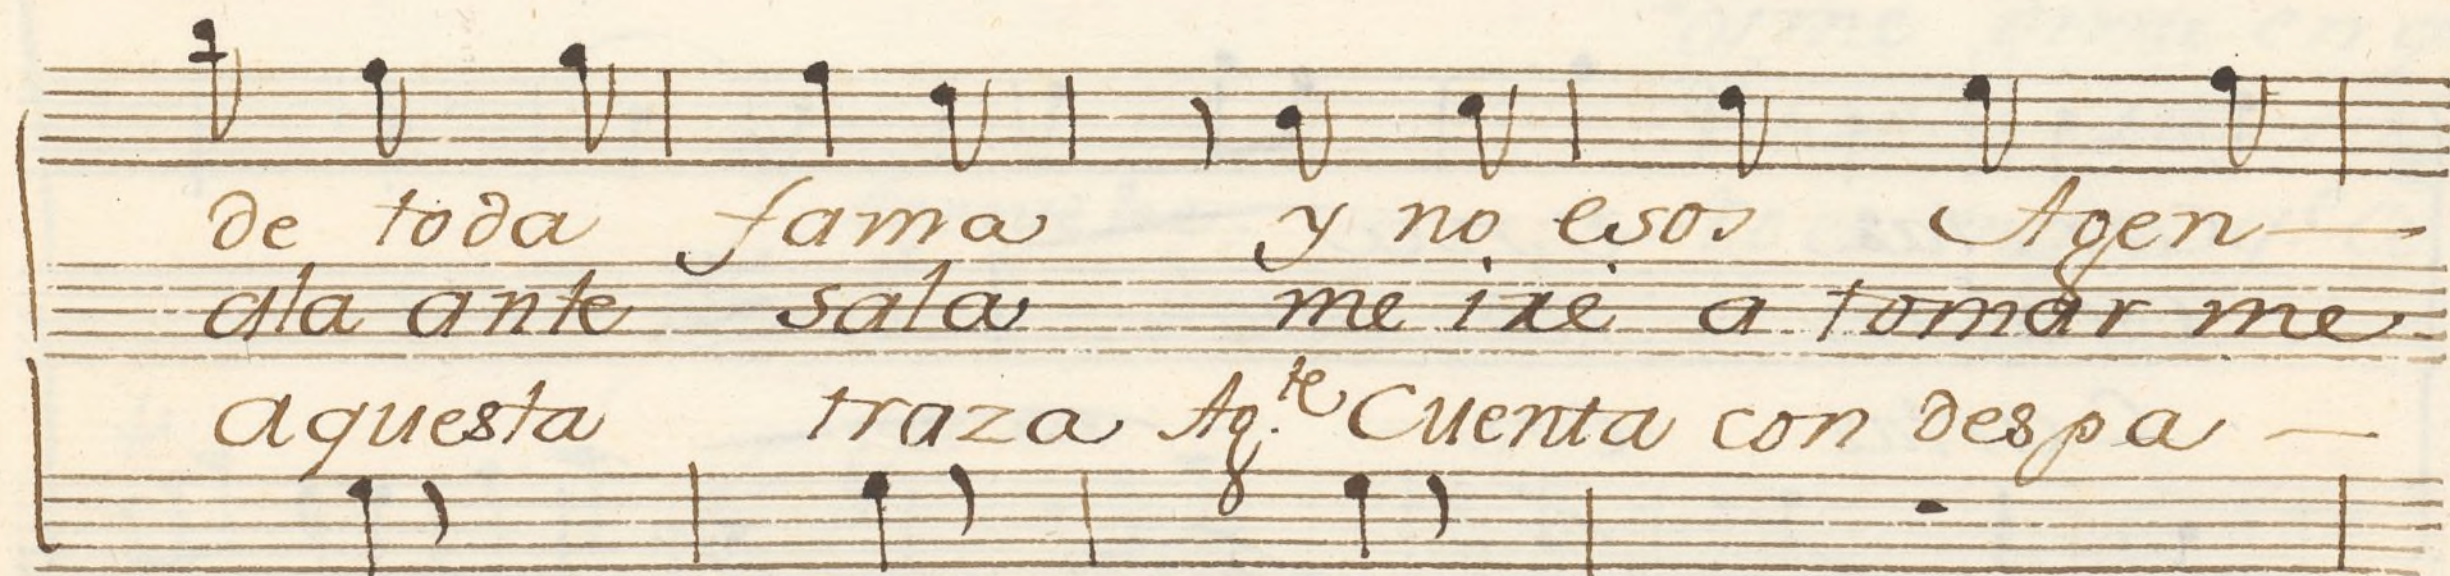 de toda fama y no esos Agen—
ala ante sala me ire a tomar me
aquesta traza Ag.te Cuenta con despa—